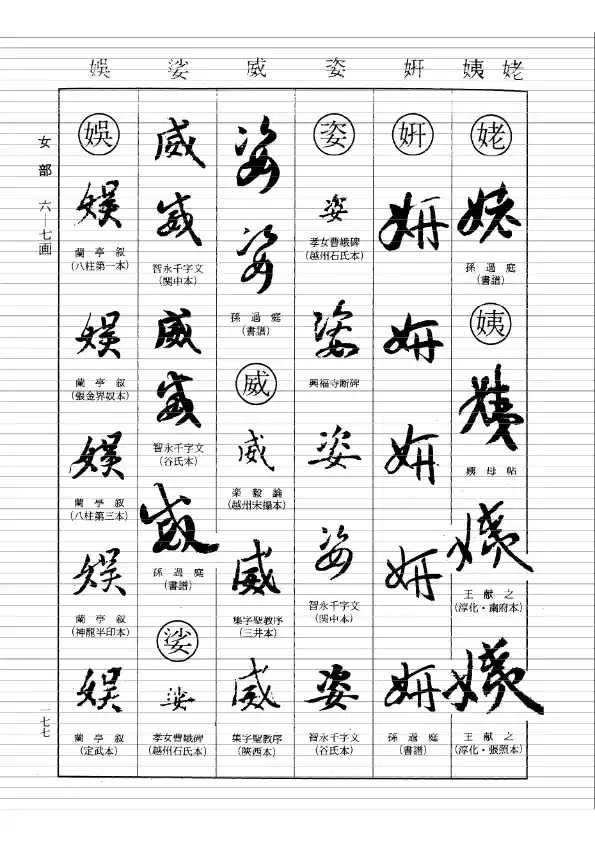 姥 姨 姸 姿 威 娑 娯
姥
姥
孫過庭
(書譜)
姨
姨
姨母帖
姨
王献之
(淳化・粛府本)
姨
王献之
(淳化・張照本)
姸
姸
姸
姸
姸
姸
孫過庭
(書譜)
姿
姿
孝女曹娥碑
(越州石氏本)
姿
興福寺断碑
姿
姿
智永千字文
(関中本)
姿
智永千字文
(谷氏本)
姿
姿
孫過庭
(書譜)
威
威
楽毅論
(越州宋搨本)
威
集字聖教序
(三井本)
威
集字聖教序
(陝西本)
威
威
智永千字文
(関中本)
威
威
智永千字文
(谷氏本)
威
孫過庭
(書譜)
娑
娑
孝女曹娥碑
(越州石氏本)
娯
娯
蘭亭叙
(八柱第一本)
娯
蘭亭叙
(張金界奴本)
娯
蘭亭叙
(八柱第三本)
娯
蘭亭叙
(神龍半印本)
娯
蘭亭叙
(定武本)
女部 六—七画
一七七